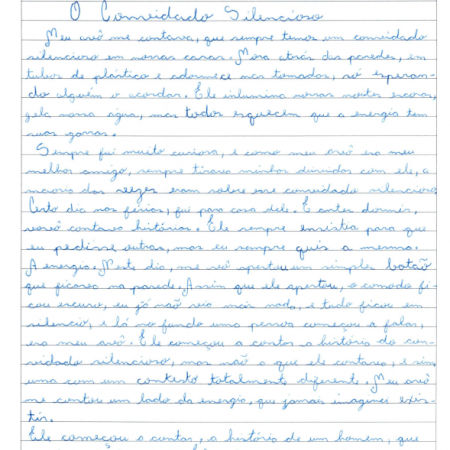 O Convidado Silencioso
Meu avô me contava, que sempre temos um convidado
silencioso em nossas casas. Mora atrás das paredes, em
tubos de plástico e adormece nas tomadas, só esperan-
do alguém o acordar. Ele inlumina nossas noites escuras,
gela nossa água, mas todos esquecem que a energia tem
suas garras.
Sempre fui muito curioso, e como meu avô era meu
melhor amigo, sempre tirava minhas dúvidas com ele, a
maioria das vezes eram sobre esse convidado silencioso
Certo dia nas férias, fui para casa dele. E antes dormir,
vovô contava histórias. Ele sempre insistia para que
eu pedisse outras, mas eu sempre quis a mesma.
A energia. Neste dia, me vô apertou um simples botão
que ficava na parede. Assim que ele apertou, o comodo fi-
cou escuro, eu já não via mais nada, e tudo ficou em
silencio, e lá no fundo uma pessoa começou a falar,
era meu avô. Ele começou a contar a história do con-
vidado silencioso, mas não a que ele contava, e sim
uma com um contexto totalmente diferente. Meu avô
me contou um lado da energia, que jamais imaginei exis-
tir.
Ele começou a contar, a história de um homem, que